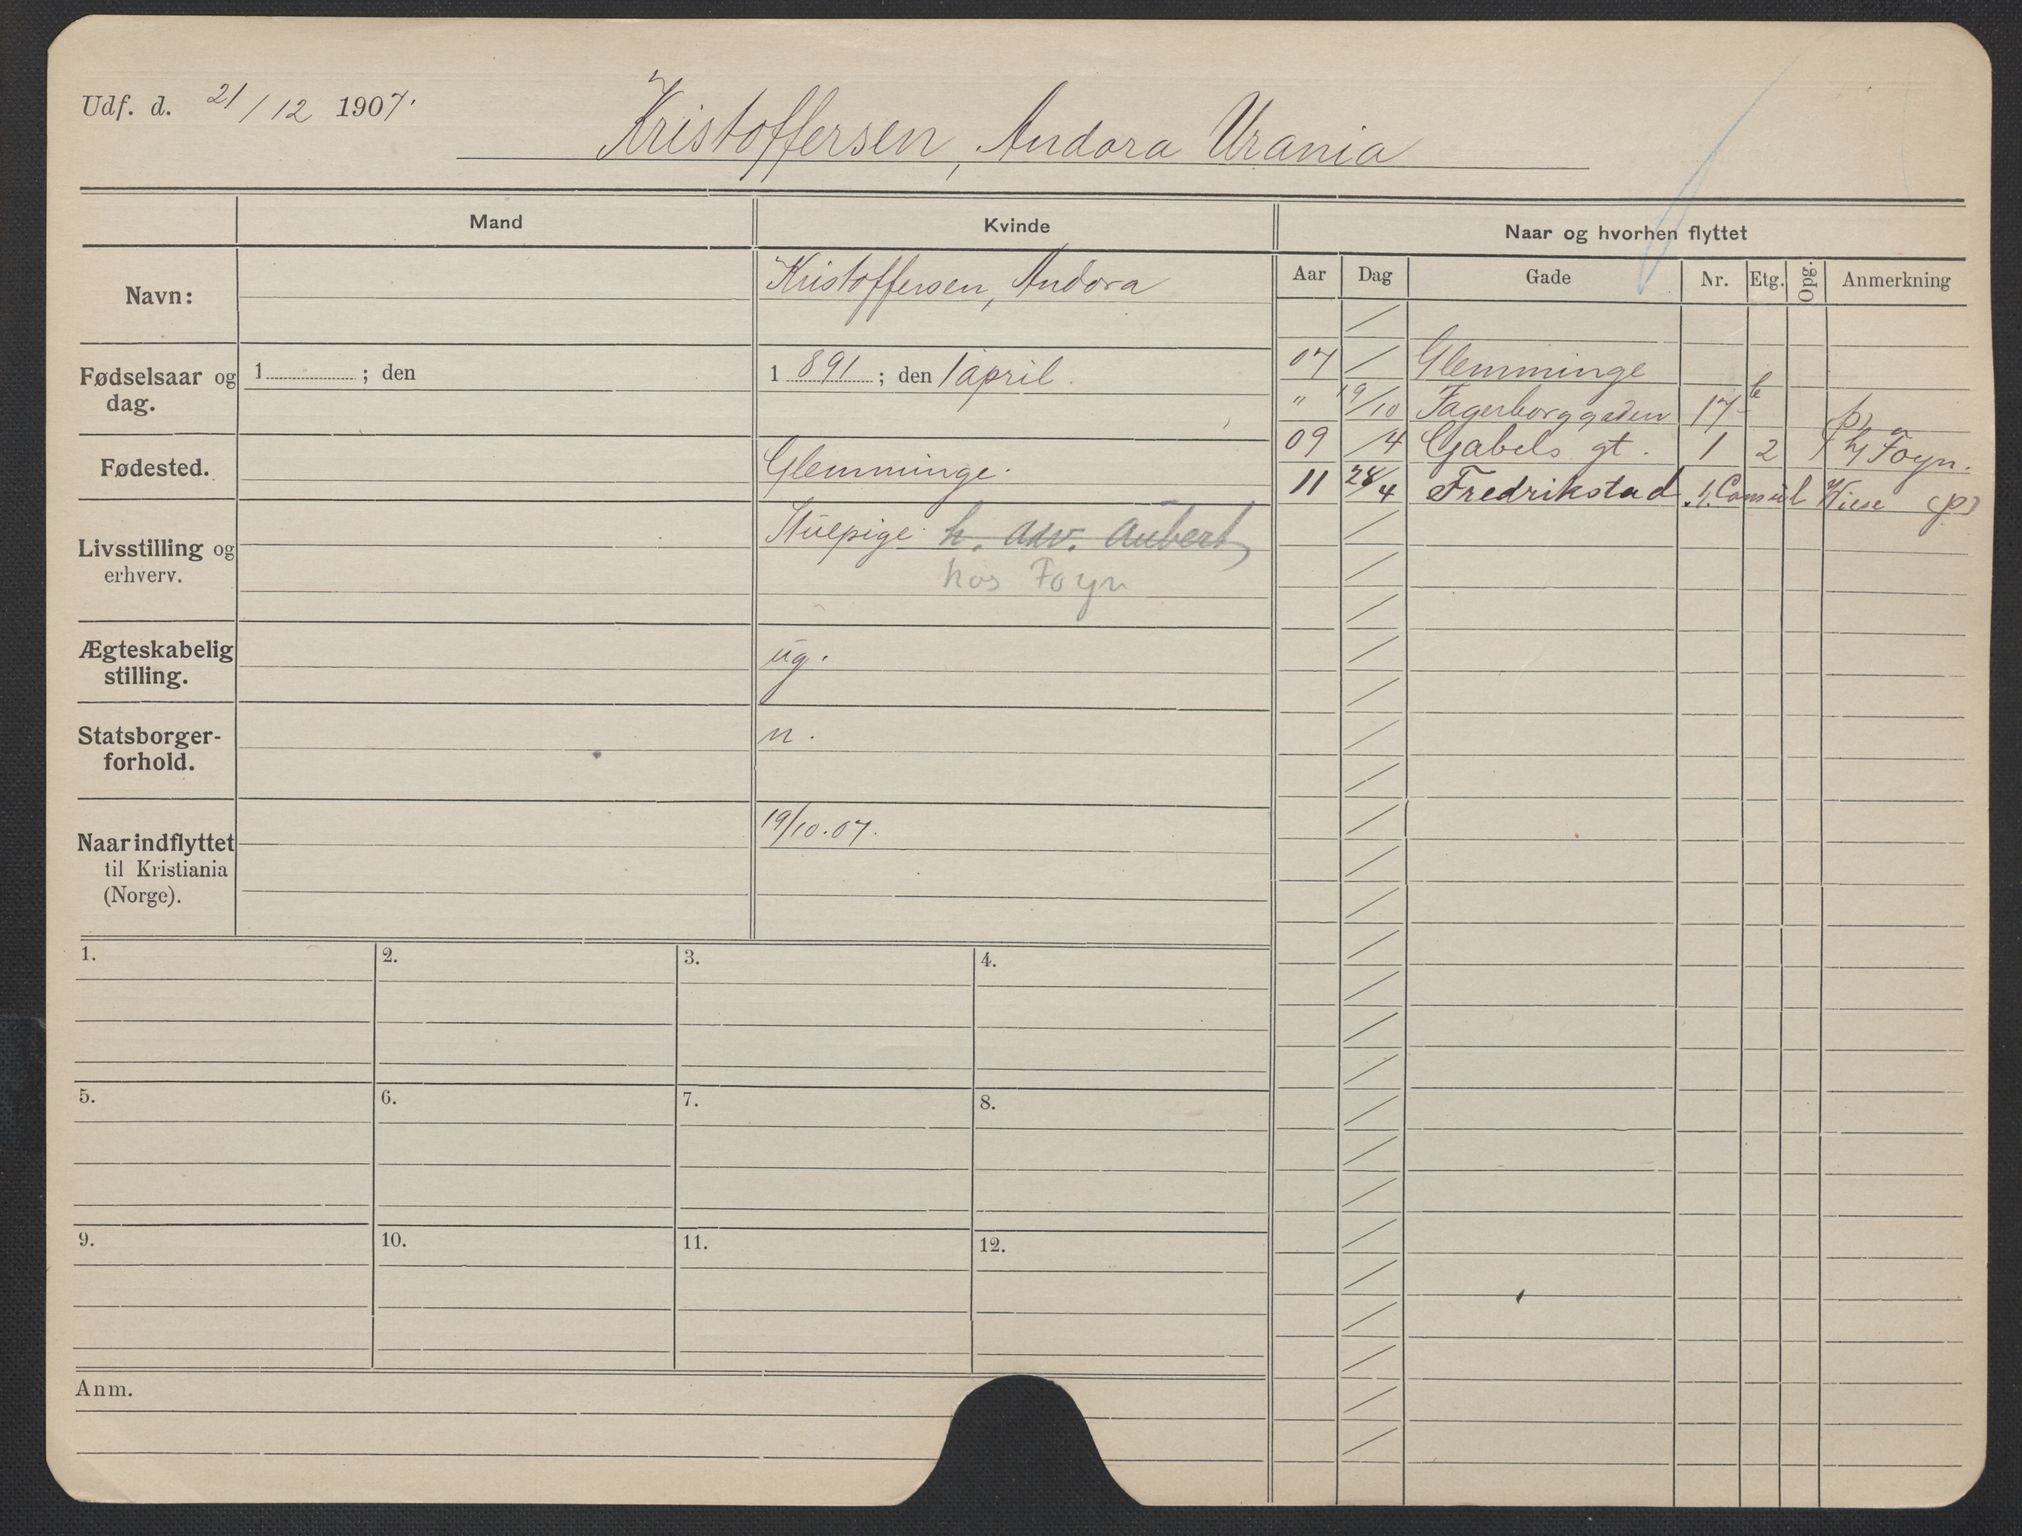 Udf. d. 21/12 1907.
Kristoffersen, Andora Urania
Mand
Kvinde
Naar og hvorhen flyttet
Aar Dag Gade Nr. Etg. Opg. Anmerkning
Navn:
Kristoffersen, Andora
Fødselsaar og dag.
1 ; den
1 891 ; den 1 april.
Fødested.
Glemminge.
Livsstilling og erhverv.
Stuepige h. adv. Aubert
hos Foyn
Ægteskabelig stilling.
ug.
Statsborgerforhold.
n.
Naar indflyttet til Kristiania (Norge).
19/10.07.
07 / Glemminge
" 19/10 Fagerborggaden 17 b
p
09 /4 Gabels gt. 1 2 h/ Foyn.
11 28/4 Fredrikstad Consul Wiese (p)
1. 2. 3. 4.
5. 6. 7. 8.
9. 10. 11. 12.
Anm.